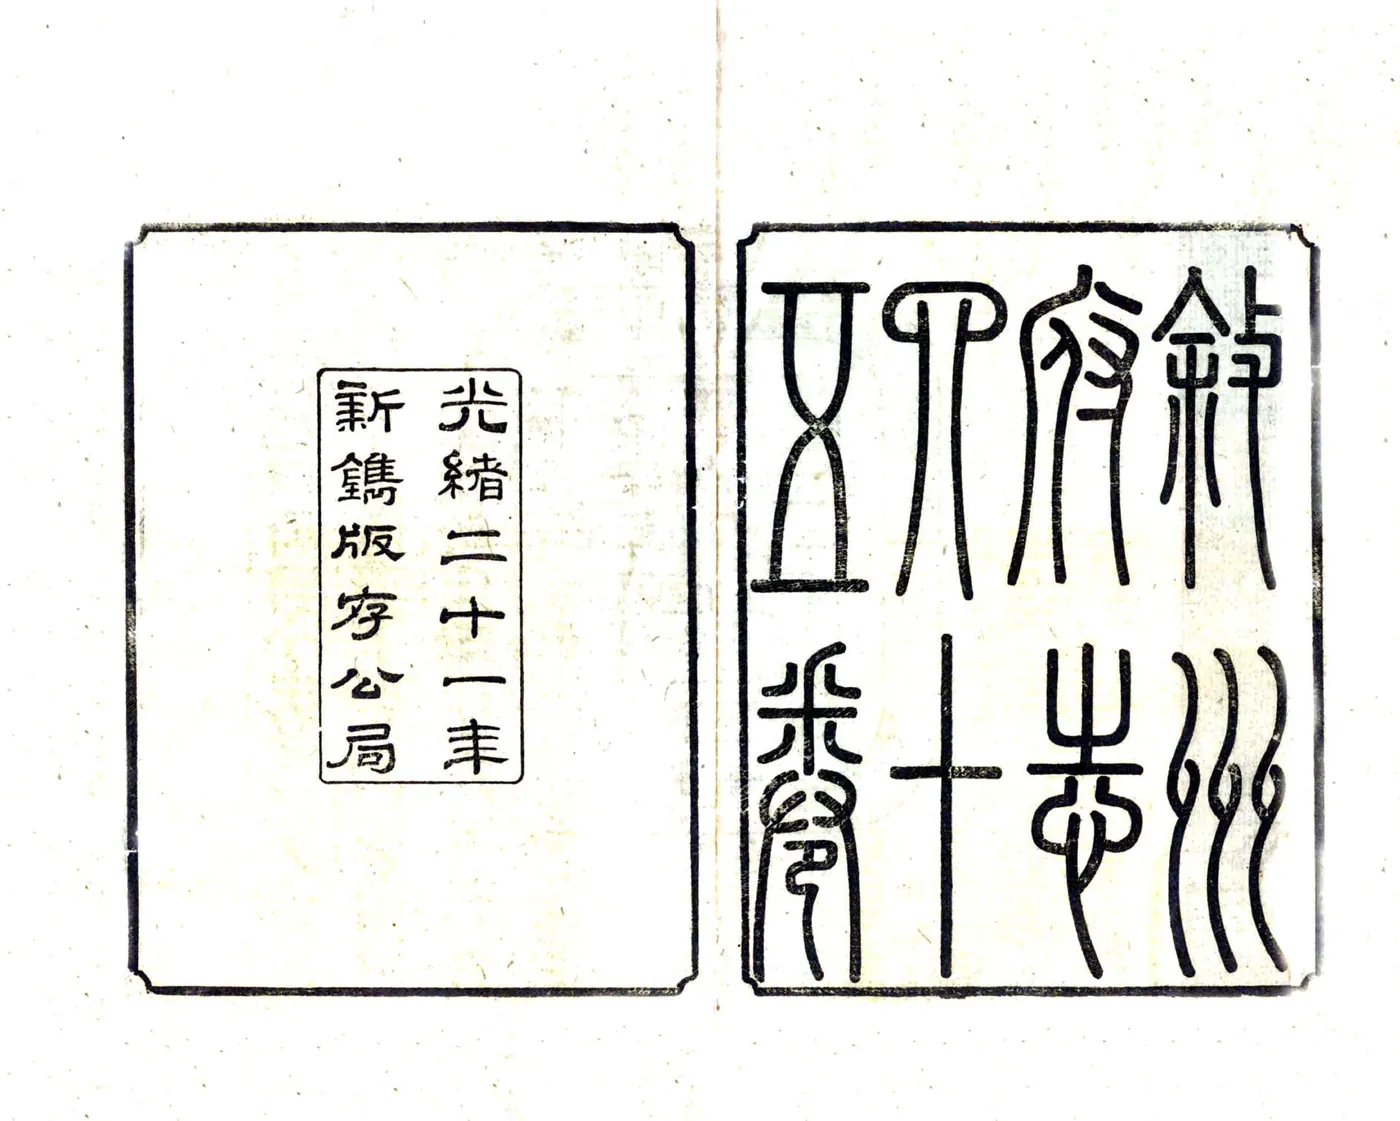 敘州
府志
四十
五卷
光緒二十一年
新鐫版存公局